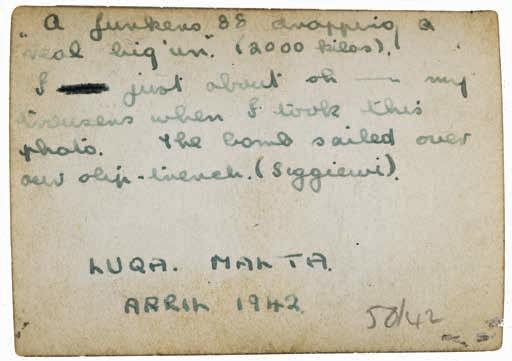 "A Junkers 88 dropping a
real big'un". (2000 kilos).
I just about sh — my
trousers when I took this
photo. The bomb sailed over
our slip-trench. (Siggiewi).
LUQA. MALTA.
APRIL 1942.
50/42